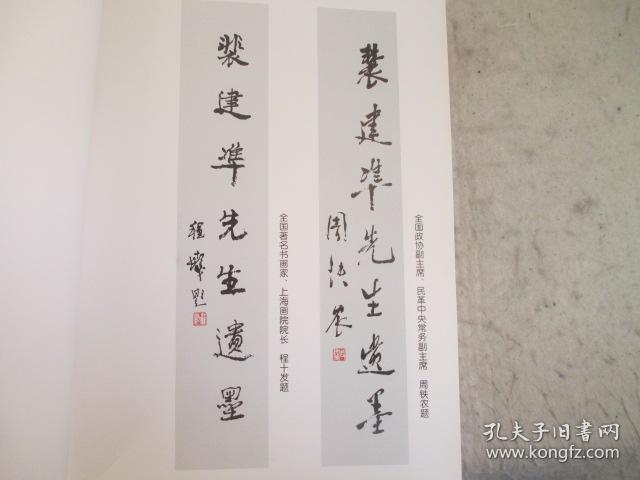 全国政协副主席、民革中央常务副主席 周铁农题
裴建準先生遗墨
周铁农
全国著名书画家、上海画院院长 程十发题
裴建準先生遗墨
程十发题
孔夫子旧书网
www.kongfz.com